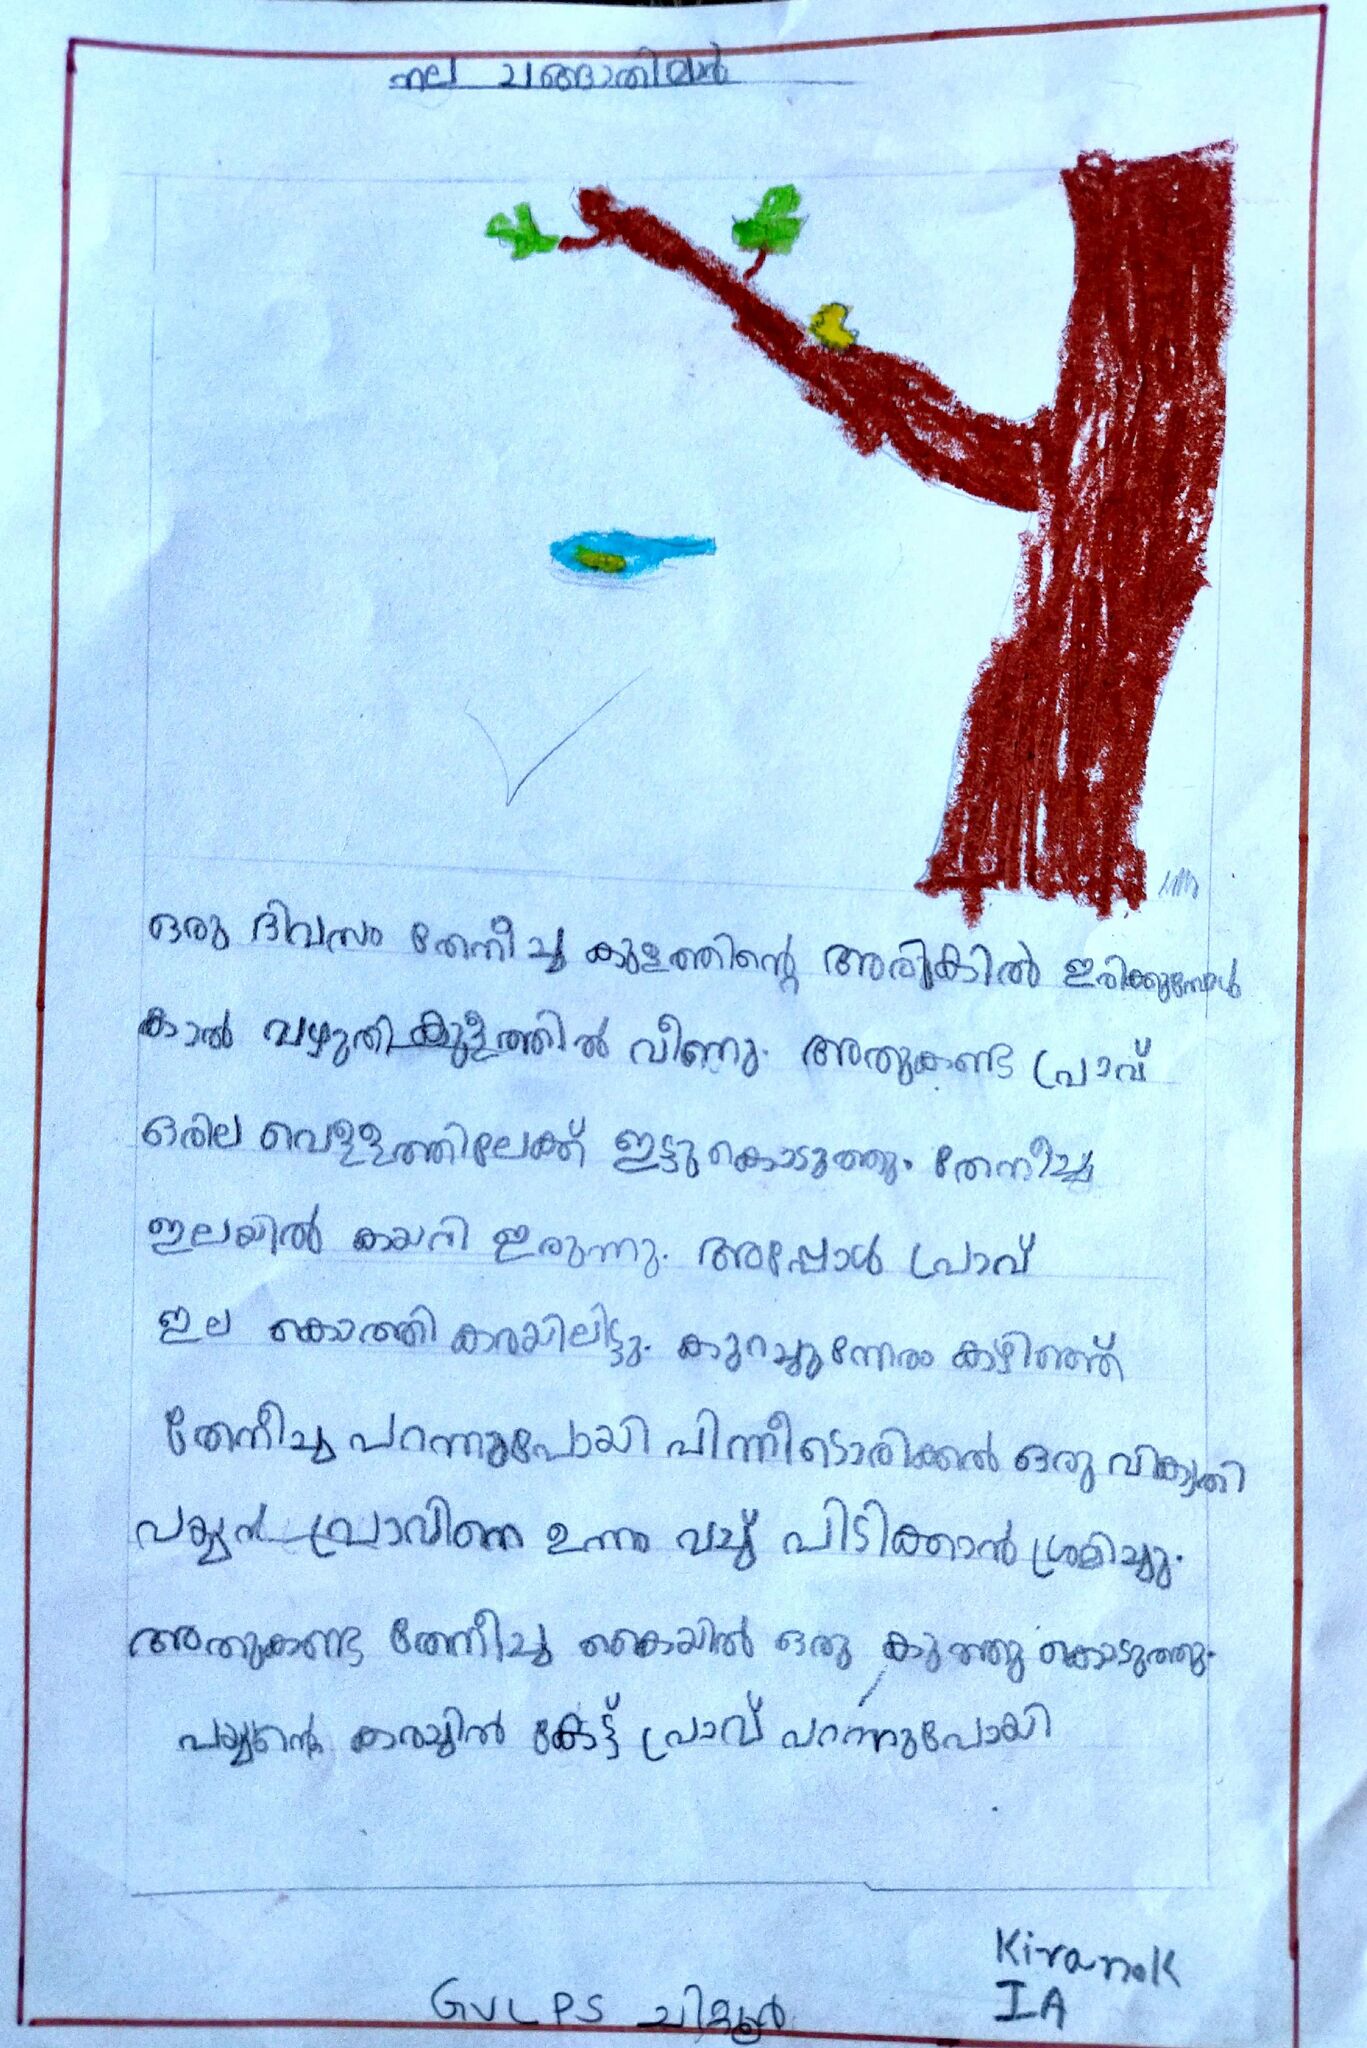 നല ചങ്ങാതിമാർ
ഒരു ദിവസം തേനീച്ച കുളത്തിന്റെ അരികിൽ ഇരിക്കുമ്പോൾ
കാൽ വഴുതി കുളത്തിൽ വീണു. അതുകണ്ട പ്രാവ്
ഒരില വെള്ളത്തിലേക്ക് ഇട്ടു കൊടുത്തു. തേനീച്ച
ഇലയിൽ കയറി ഇരുന്നു. അപ്പോൾ പ്രാവ്
ഇല കൊത്തി കരയിലിട്ടു. കുറച്ചുന്നേരം കഴിഞ്ഞ്
തേനീച്ച പറന്നുപോയി പിന്നീടൊരിക്കൽ ഒരു വികൃതി
പയ്യൻ പ്രാവിനെ ഉന്നം വച്ച് പിടിക്കാൻ ശ്രമിച്ചു.
അതുകണ്ട തേനീച്ച കൈയിൽ ഒരു കുത്തു കൊടുത്തു.
പയ്യന്റെ കരച്ചിൽ കേട്ട് പ്രാവ് പറന്നുപോയി
Kiran.K
IA
GVLPS ചിറ്റൂർ